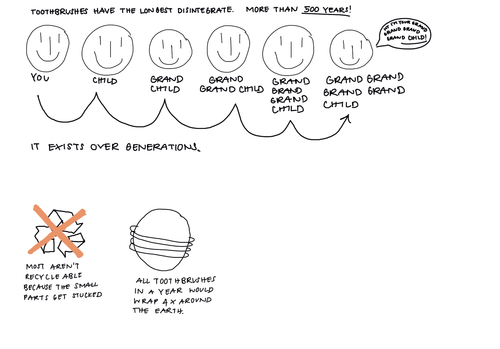 TOOTHBRUSHES HAVE THE LONGEST DISINTEGRATE. MORE THAN 500 YEARS!
HI I'M YOUR GRAND
GRAND GRAND
GRAND CHILD!
YOU
CHILD
GRAND
CHILD
GRAND
GRAND CHILD
GRAND
GRAND
GRAND
CHILD
GRAND GRAND
GRAND GRAND
CHILD
IT EXISTS OVER GENERATIONS.
MOST AREN'T
RECYCLEABLE
BECAUSE THE SMALL
PARTS GET STUCKED
ALL TOOTHBRUSHES
IN A YEAR WOULD
WRAP 4X AROUND
THE EARTH.